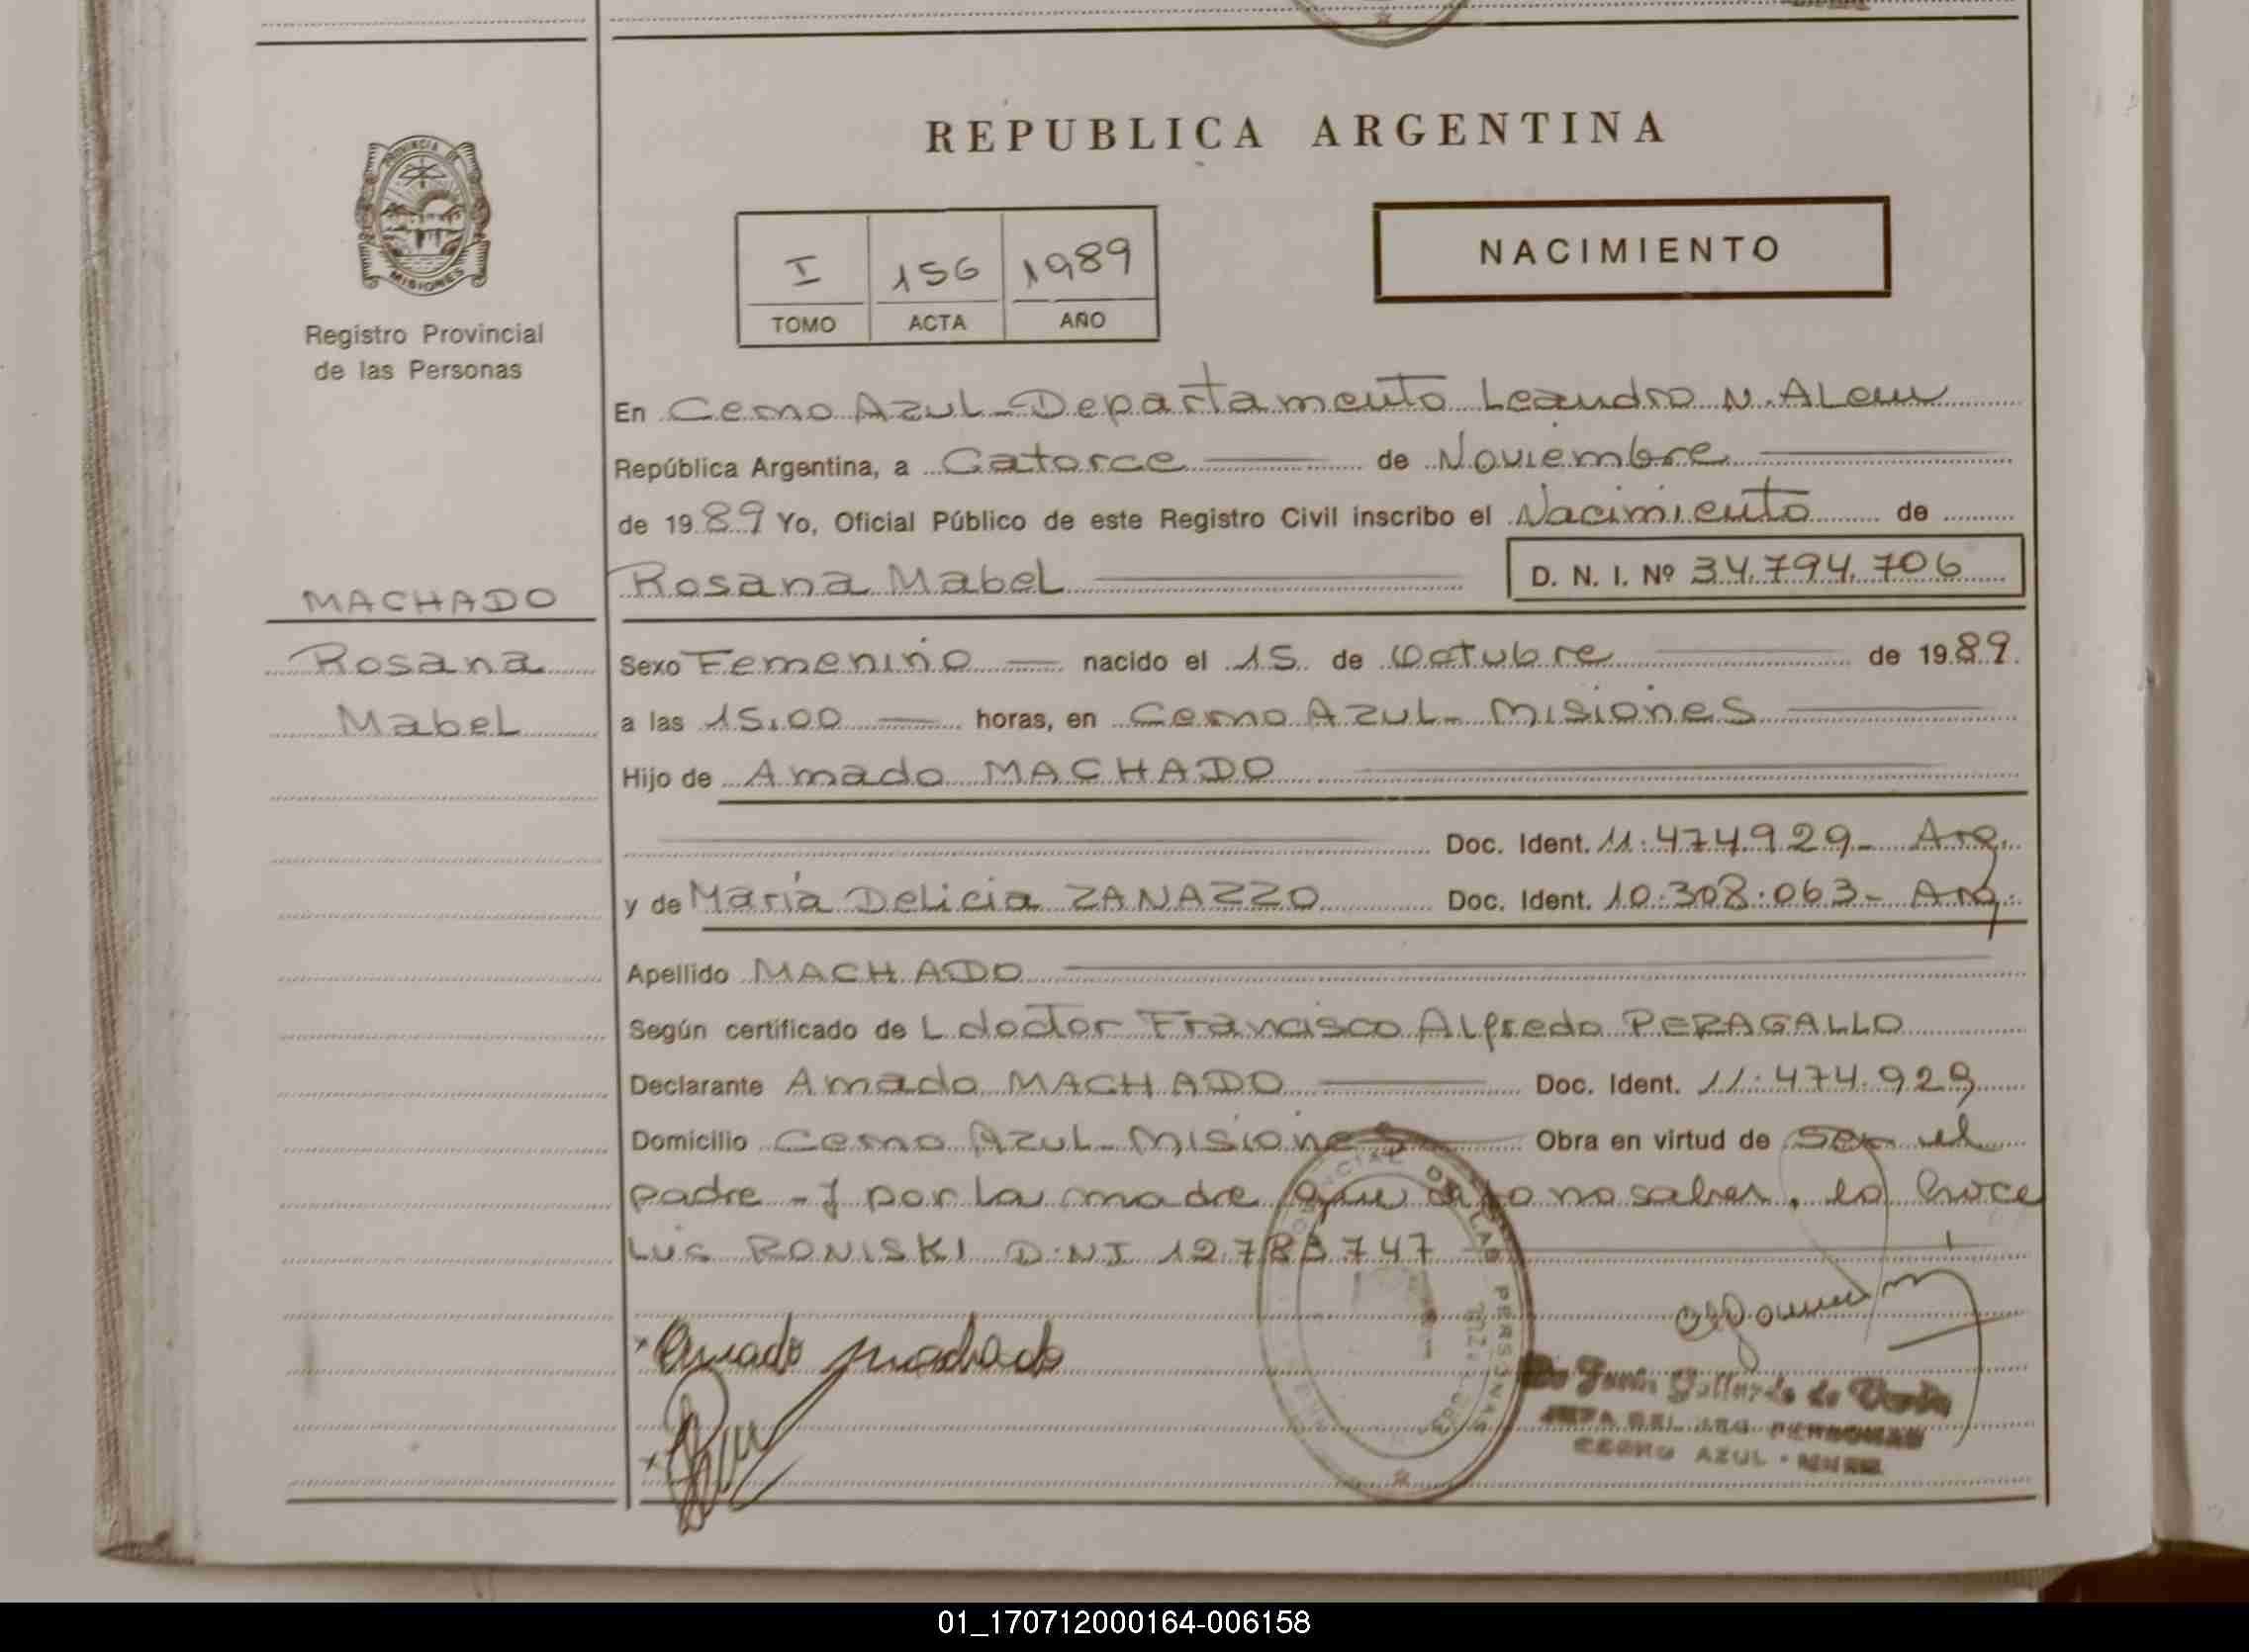 REPUBLICA ARGENTINA
PROVINCIA DE
MISIONES
Registro Provincial
de las Personas
I 156 1989
TOMO ACTA AÑO
NACIMIENTO
En Cerro Azul - Departamento Leandro N. Alem
República Argentina, a Catorce de Noviembre
de 1989 Yo, Oficial Público de este Registro Civil inscribo el Nacimiento de
Rosana Mabel D. N. I. Nº 34.794.706
MACHADO
Rosana
Mabel
Sexo Femenino nacido el 15 de Octubre de 1989.
a las 15.00 horas, en Cerro Azul - Misiones
Hijo de Amado MACHADO
Doc. Ident. 11.474.929 - Arg.
y de María Delicia ZANAZZO Doc. Ident. 10.308.063 - Arg.
Apellido MACHADO
Según certificado del doctor Francisco Alfredo PERAGALLO
Declarante Amado MACHADO Doc. Ident. 11.474.929
Domicilio Cerro Azul - Misiones Obra en virtud de ser el
padre - y por la madre que dijo no saber, lo hace
Luis RONISKI D.N.I 12.783.747
Amado Machado
DE LAS PERSONAS
CERRO AZUL
01_170712000164-006158